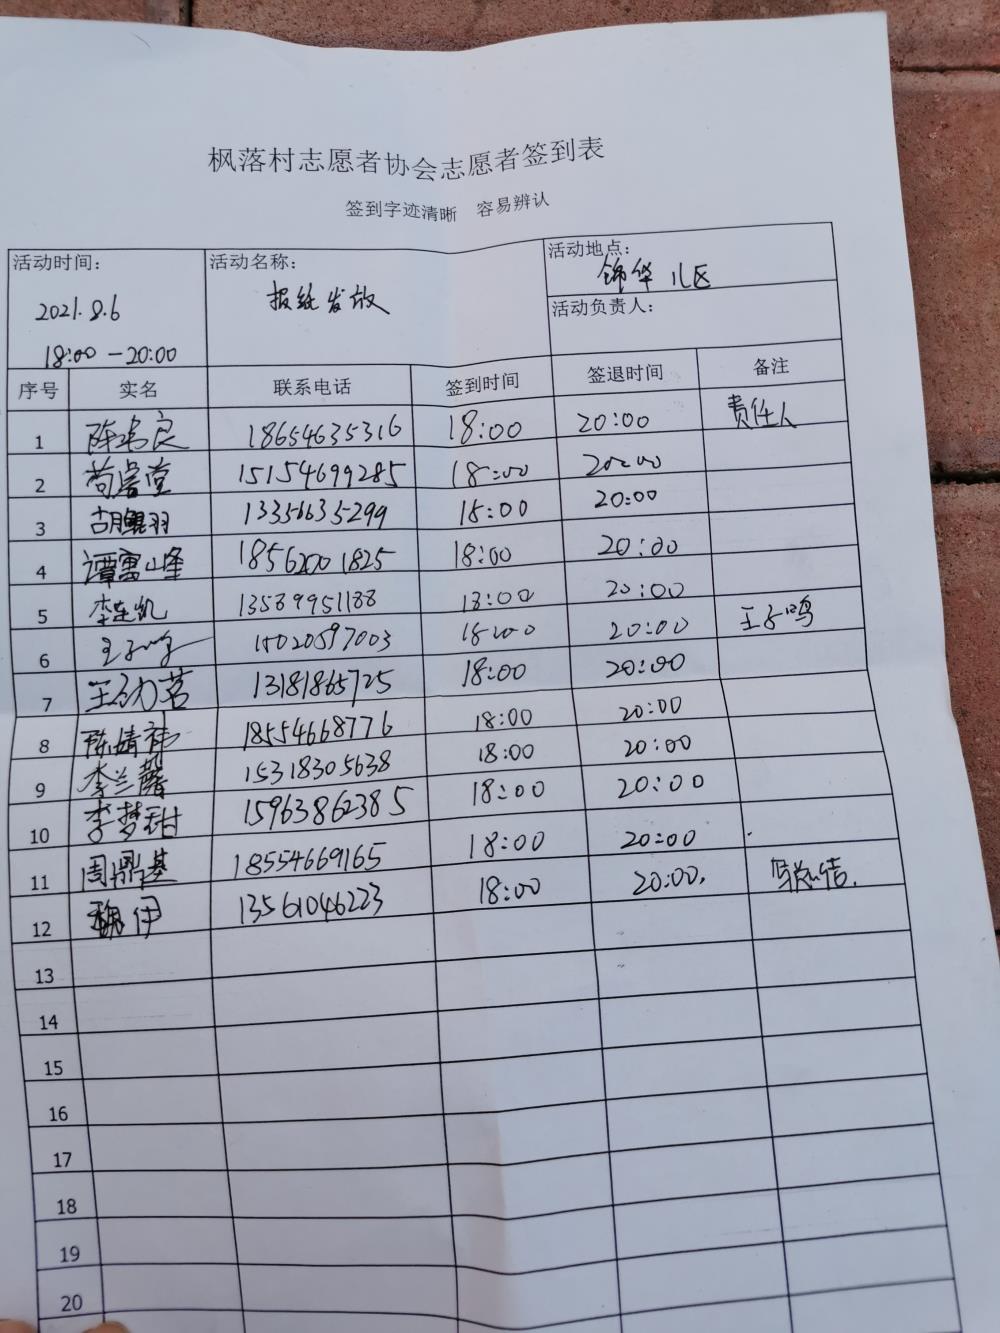 枫落村志愿者协会志愿者签到表
签到字迹清晰 容易辨认
活动时间： 活动名称： 活动地点：
锦华儿区
2021.8.6 报纸发放
活动负责人：
18:00-20:00
序号 实名 联系电话 签到时间 签退时间 备注
1 陈韦良 18654635316 18:00 20:00 责任人
2 苟睿堂 15154699285 18:00 20:00
3 胡鲲羽 13356635299 18:00 20:00
4 谭富峰 18562001825 18:00 20:00
5 李连凯 13589951188 18:00 20:00
6 王子鸣 15020597003 18:00 20:00 王子鸣
7 王劝茗 13181865725 18:00 20:00
8 陈婧祎 18554668776 18:00 20:00
9 李兰馨 15318305638 18:00 20:00
10 李梦甜 15963862385 18:00 20:00
11 周鼎基 18554669165 18:00 20:00
12 魏伊 13561046223 18:00 20:00. 写总结.
13
14
15
16
17
18
19
20